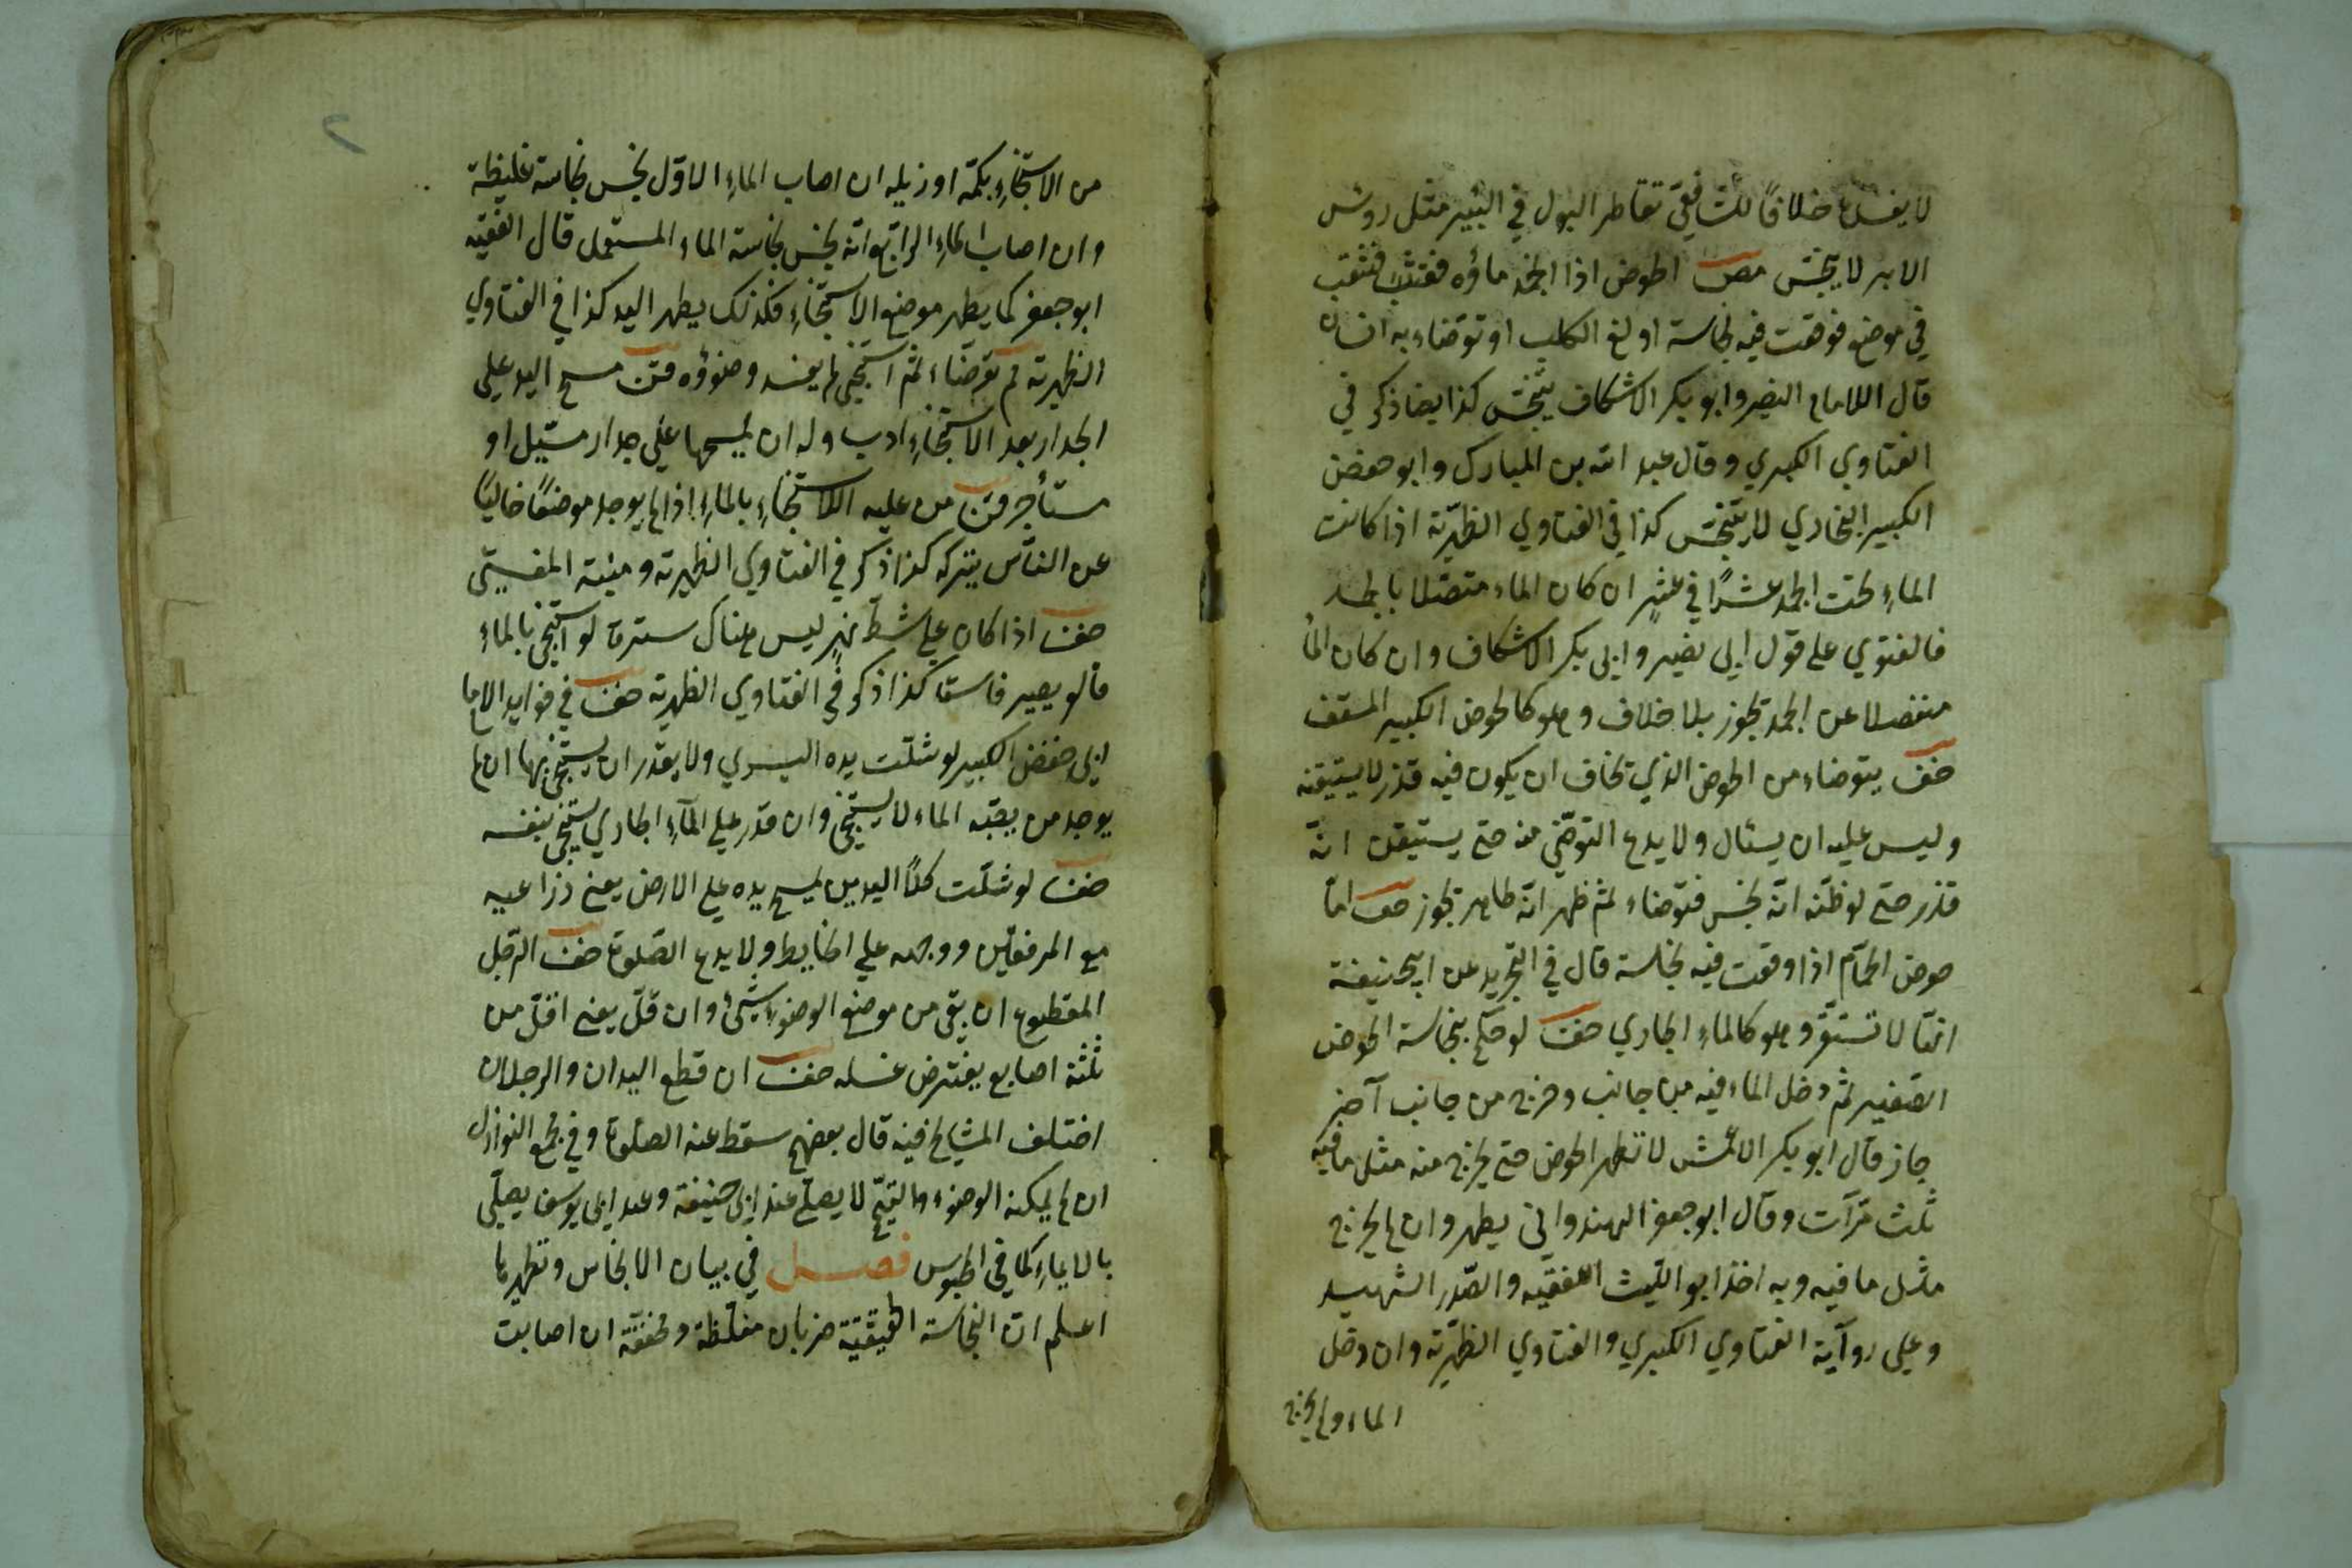 لا يفسد خلافًا للشافعيّ تقاطر البول في البئير مثل روئس
الابر لا ينجّس مص الحوض اذا انجمد ماؤه فثقب
في موضع فوقعت فيه نجاسة او لغ الكلب او توضاء به انسان
قال اللامام النصير وابو بكر الاشكاف يتنجّس كذا ايضا ذكر في
الفتاوي الكبري وقال عبد الله بن المبارك وابو حفض
الكبير البخاري لا يتنجّس كذا في الفتاوي الظهيرّية اذا كانت
الماءِ تحت الجمد عشرًا في عشرٍ ان كان الماء متصّلا بالجمد
فالفتوي علي قول ابي نصير وابي بكر الاشكاف وان كان الماء
منفصلا عن الجمد تجوز بلا خلاف وهو كالحوض الكبير المسقف
خف يتوضاء من الحوض الذي تخاف ان يكون فيه قذر لا يستيقنه
وليس عليه ان يسئال ولا يدع التوضّي منه حتي يستيقن انّه
قذر حتّي لو ظنّه انّه نجس فتوضاء ثم ظهر انّه طاهر تجوز صف امّا
حوض الحمّام اذا وقعت فيه نجاسة قال في التجريد عن ابي حنيفة
انّها لا تستقّر وهو كالماءِ الجاري خف لو حكم بنجاسة الحوض
الصّغير ثم دخل الماء فيه من جانب وخرج من جانب آخر
جاز قال ابو بكر الاعمش لا تطهر الحوض حتي يخرج منه مثل ما فيه
ثلث مرّآت وقال ابو جعفر الهندواني يطهر وان لم يخرج
مثل ما فيه وبه اخذ ابو اللّيث الفقيه والصّدر الشهيد
وعلي روآية الفتاوي الكبيري والفتاوي الظهيرّية وان دخل
الماء ولم يخرج
من الاستنجاءِ بكمّة او زيله ان اصاب الماءِ الاوّل نجس نجاسة غليظة
وان اصاب الماءِ الرابع انّه نجس نجاسة الماء المستعمل قال الفقيه
ابو جعفر كما يطهر موضع الاستنجاءِ فكذلك يطهر اليد كذا في الفتاوي
الظهيرية لم توضّاء ثم استنجي لم يفسد وضوؤه مسح اليد علي
الجدار بعد الاستنجاءِ ادب وله ان يمسحها علي جدار مسّبل او
مستأجر من عليه اللاستنجاءِ بالماءِ اذا لم يوجد موضعًا خاليًا
عن النّاس يتركه كذا ذكر في الفتاوي الظهيرية ومنية المفتي
خف اذا كان علي شطّ نهرٍ ليس هناك سترة لو استنجي بالماء
قالو يصير فاسقا كذا ذكر في الفتاوي الظهيرية خف في فوايد الاما
ابي حفض الكبير لو شلّت يده اليسري ولا يقدر ان يستنجي بها ان لم
يوجد من يصّبه الماء لا يستنجي وان قدر علي المآء الجاري يستنجي بنفسه
خف لو شلّت كلتا اليدين يمسح يده علي الارض يعني ذراعيه
مع المرفقين ووجهه علي الحايط ولا يدع الصّلوة خف الرّجل
المقطوع ان بقي من موضع الوضوءِ شئ وان قلّ يعني اقلّ من
ثلثة اصابع يفترض غسله خف ان قطع اليدان والرجلان
اختلف المشايخ فيه قال بعضهم سقط عنه الصّلوة وفي مجمع النوازل
ان لم يمكنه الوضوء والتيمّم لا يصلّي عند ابي حنيفة وعند ابي يوسف يصلّي
بالايماءِ كما في المحبوس فصل في بيان الانجاس وتطهيرها
اعلم انّ النجاسة الحقيقيّة ضربان مغلّظة ومخفّفة ان اصابت